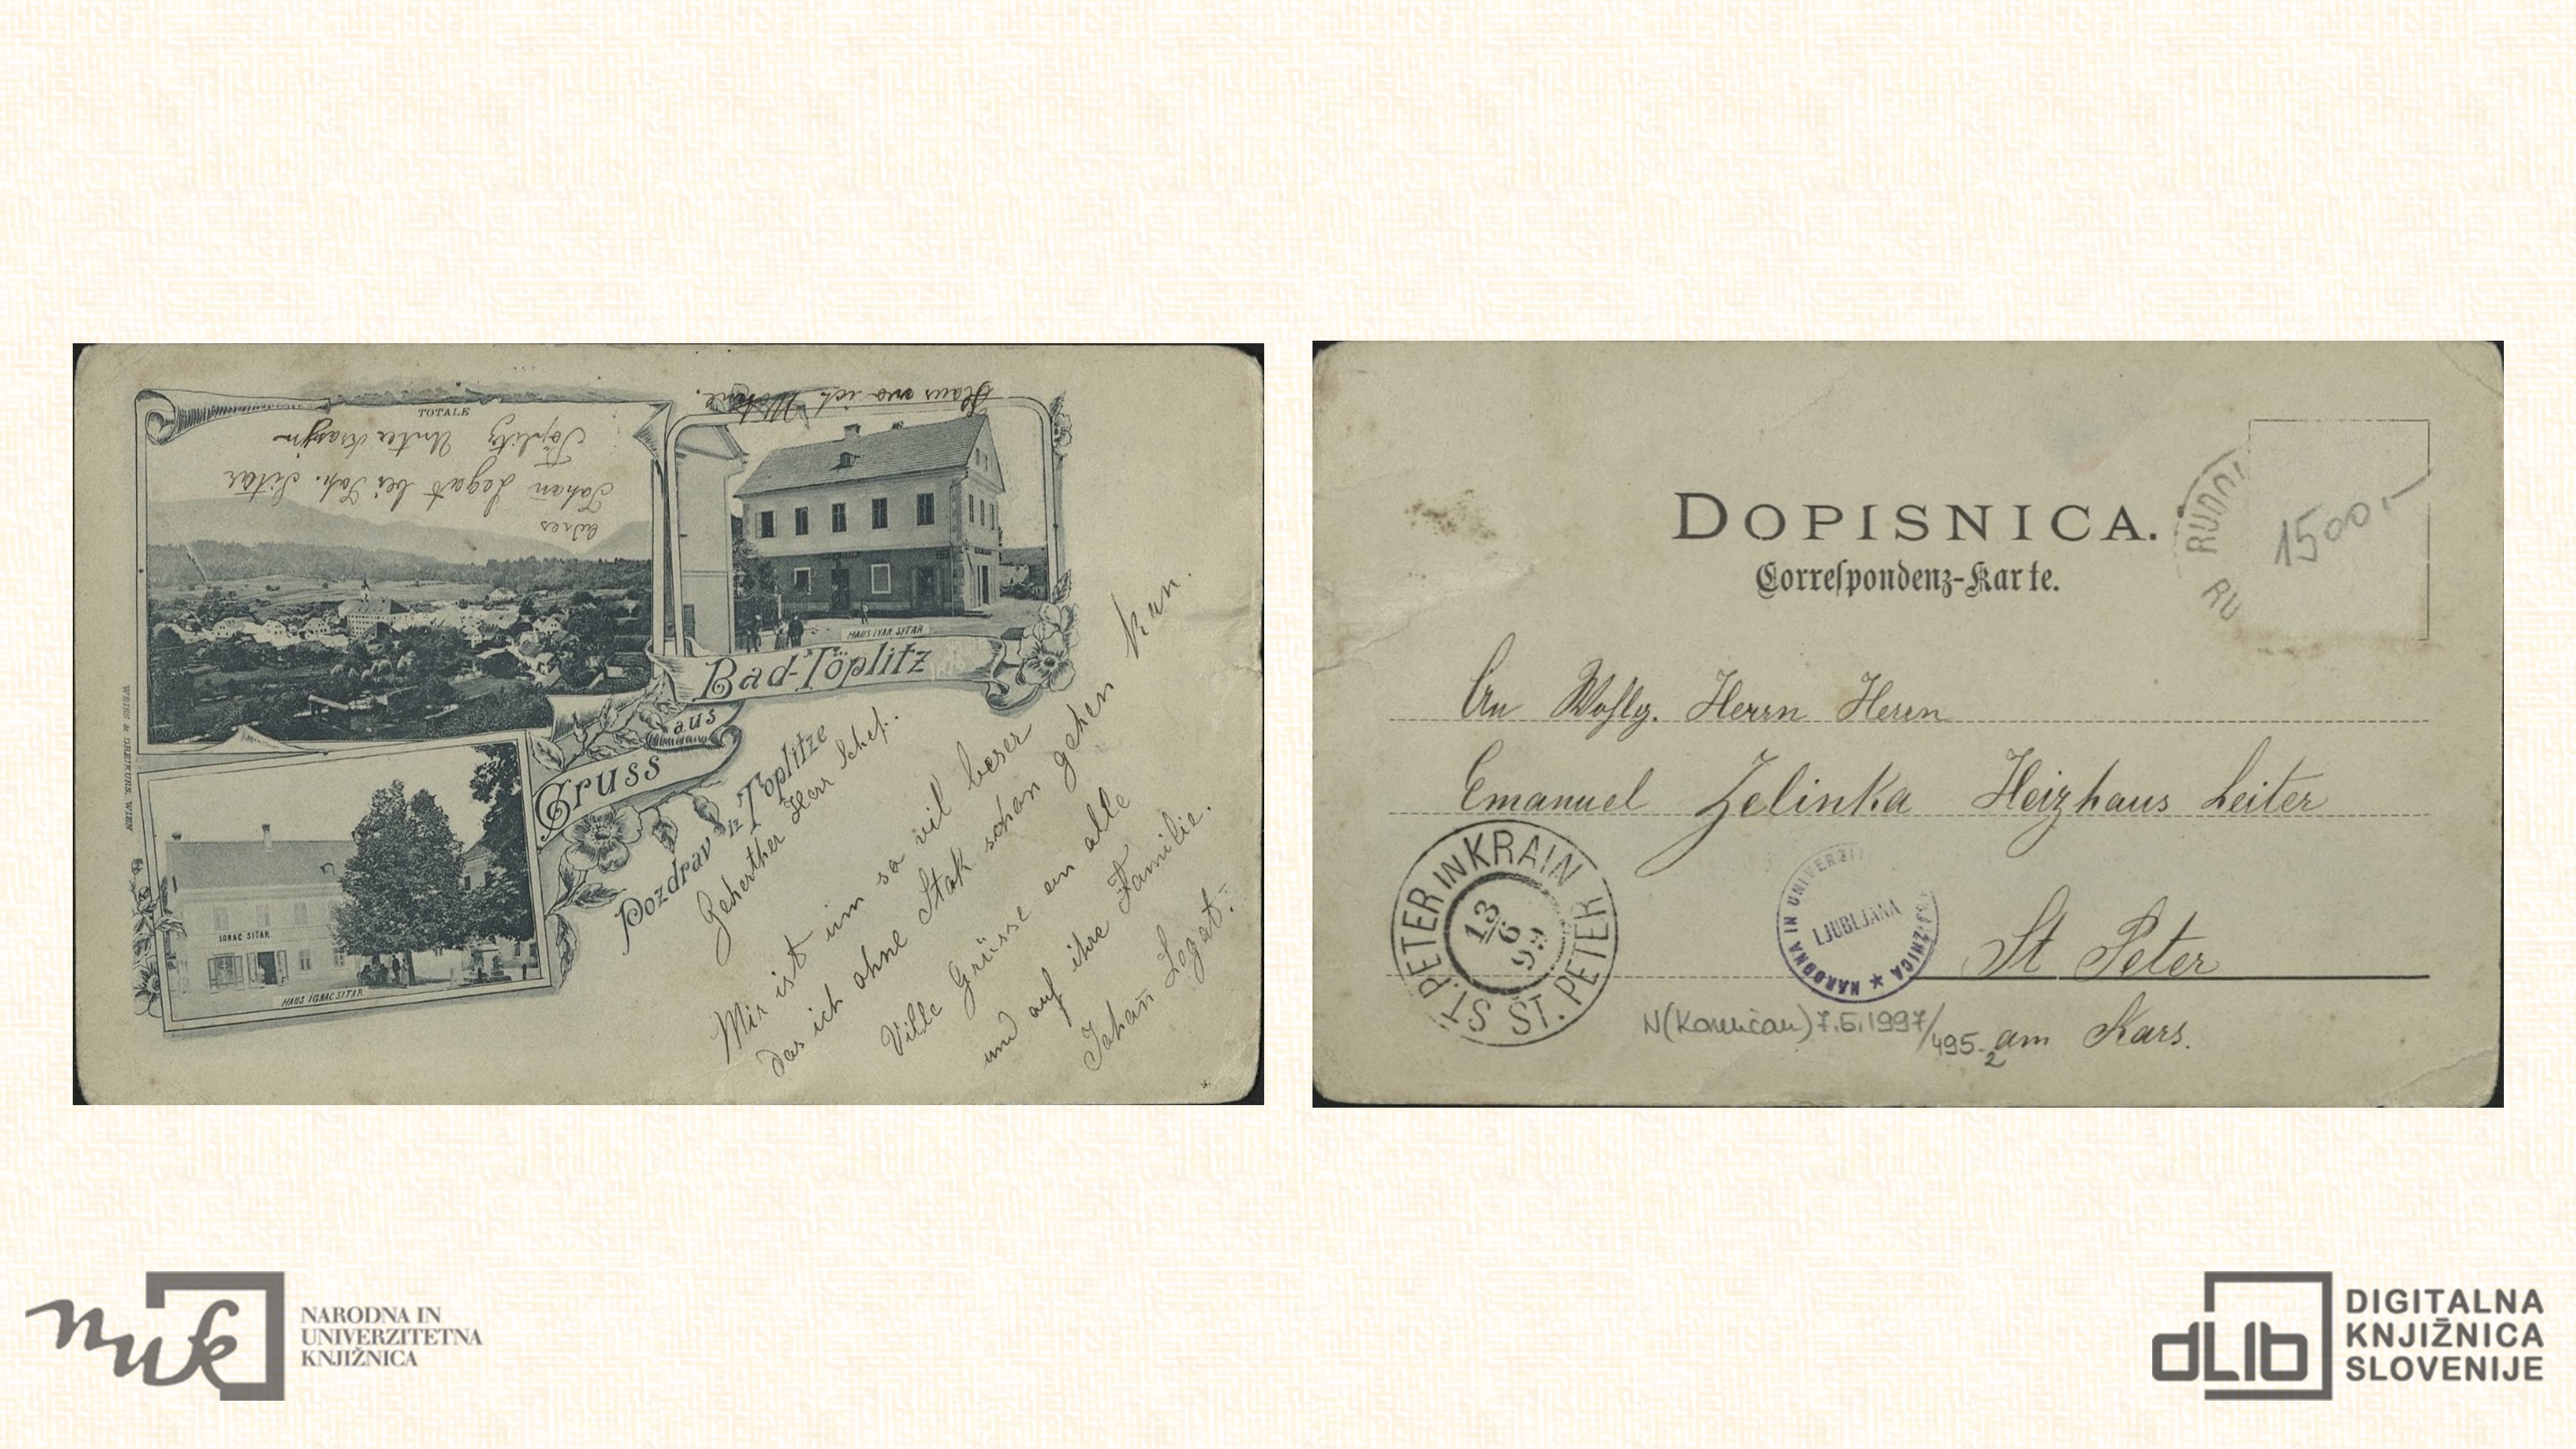 TOTALE
Haus wo ich Wohne.
adres
Johan̄ Legat bei Joh. Sitar
Töplitz Unter Krayn
HAUS IVAN SITAR
Gruss aus Bad-Töplitz
Pozdrav iz Toplitze
IGNAC SITAR
HAUS IGNAC SITAR
WEISS & DREIKURS, WIEN
Geherther Herr Schef.
Mir ist um so vil beser
das ich ohne Stak schon gehen kan.
Ville Grüsse an alle
und auf ihre Familie.
Johan̄ Legat.
DOPISNICA.
Correspondenz-Karte.
RUDOL
RU
1500,-
An Wohlg. Herrn Herrn
Emanuel Zelinka Heizhaus Leiter
St Peter
am Kars.
ST. PETER IN KRAIN
ST. PETER
13/6 99
NARODNA IN UNIVERZIT
KNJIŽNICA
LJUBLJANA
7.5.1997/495
2
nuk
NARODNA IN
UNIVERZITETNA
KNJIŽNICA
dLib
DIGITALNA
KNJIŽNICA
SLOVENIJE